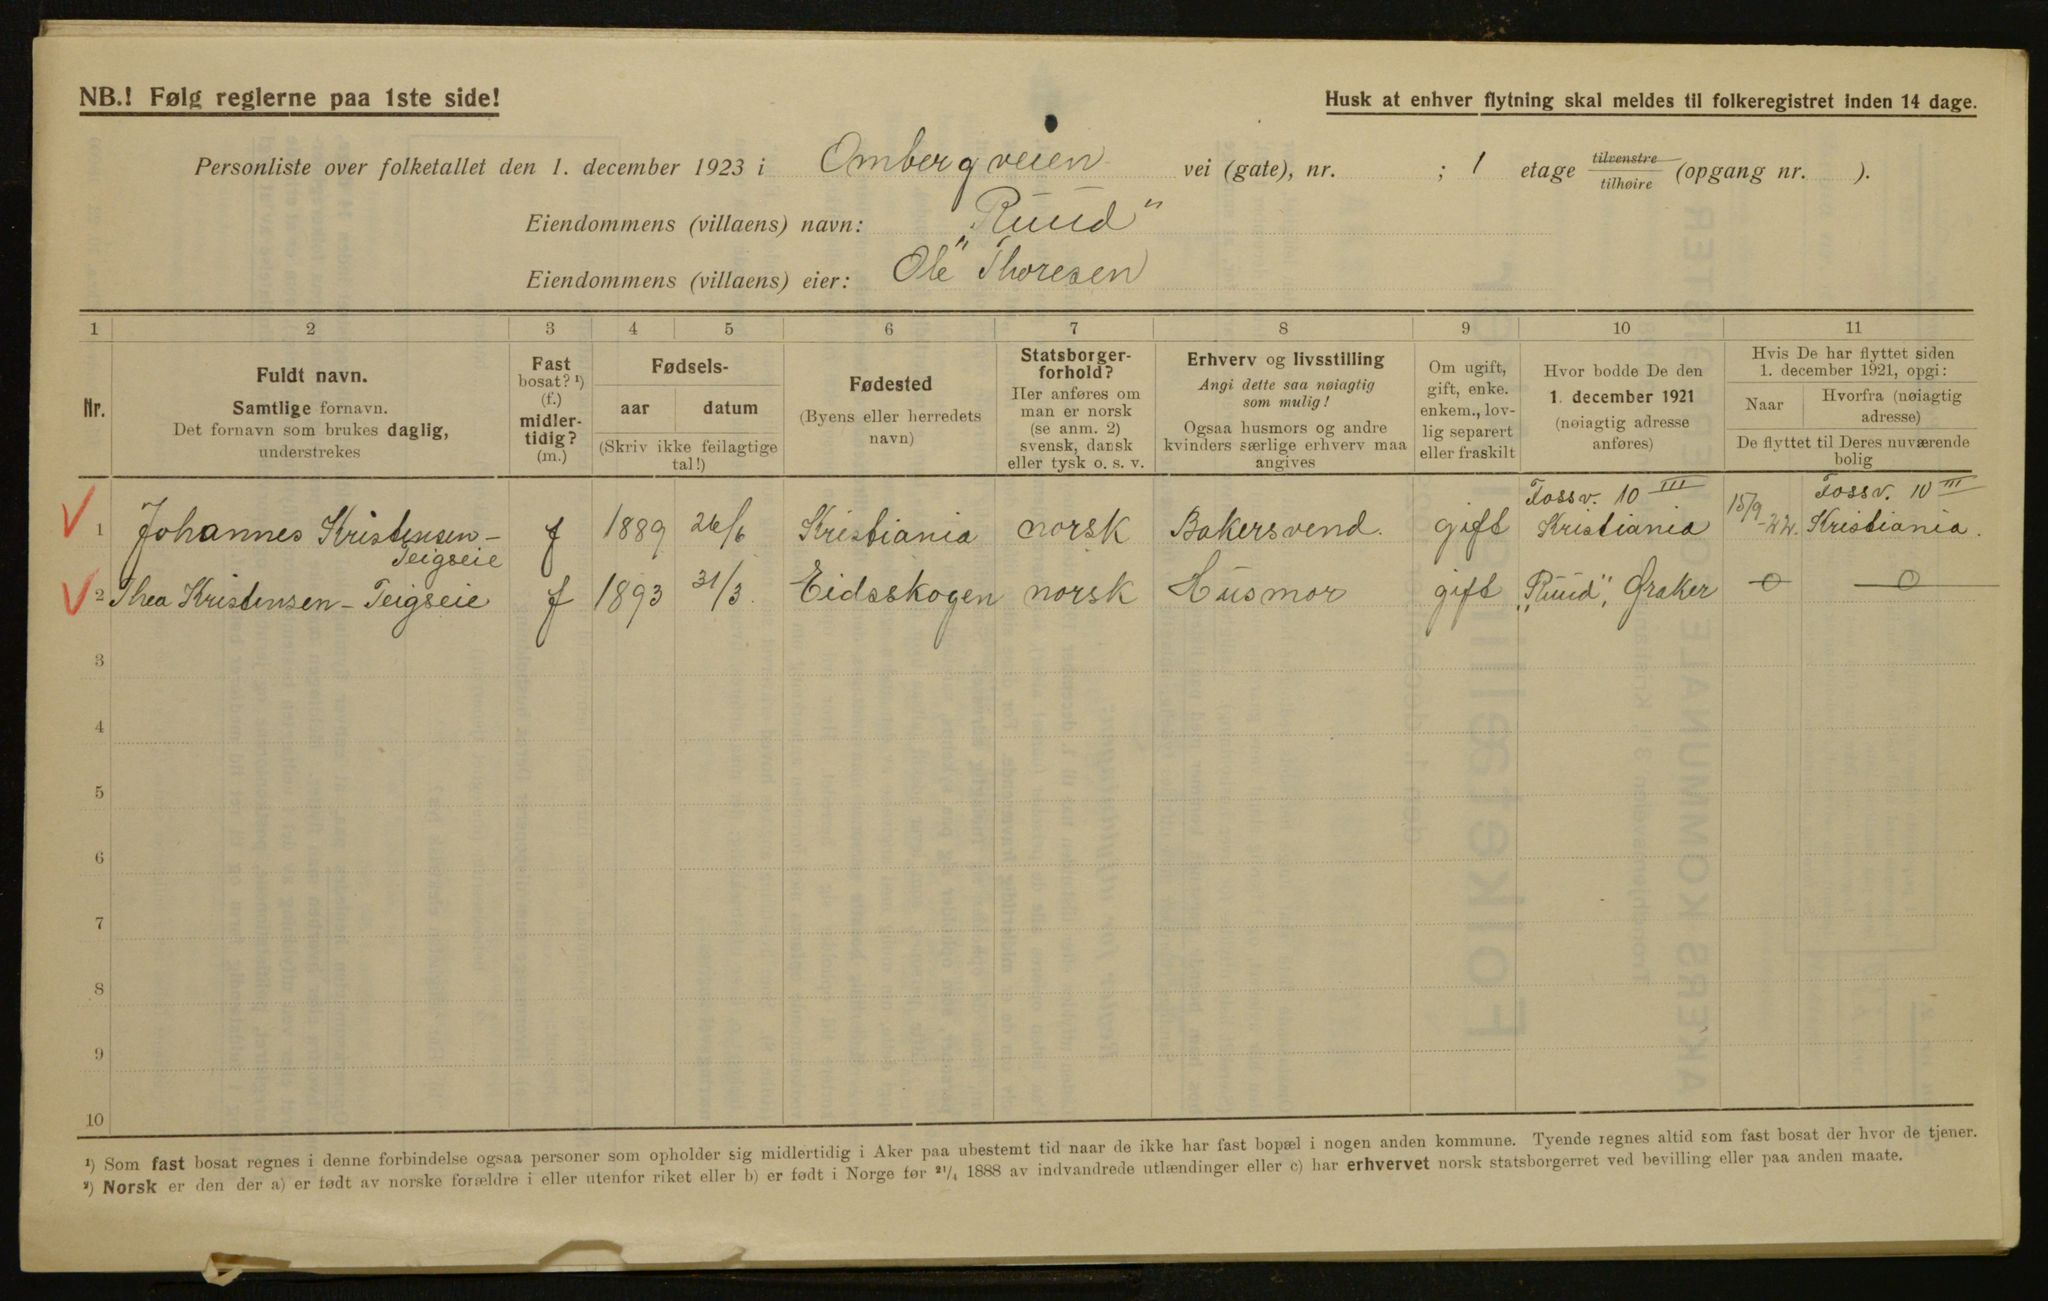 NB.! Følg reglerne paa 1ste side!
Husk at enhver flytning skal meldes til folkeregistret inden 14 dage.
Personliste over folketallet den 1. december 1923 i Ombergveien vei (gate), nr. ; 1 etage tilvenstre/tilhøire (opgang nr. ).
Eiendommens (villaens) navn: „Ruud"
Eiendommens (villaens) eier: Ole Thoresen
1 2 3 4 5 6 7 8 9 10 11
Nr.
Fuldt navn.
Samtlige fornavn.
Det fornavn som brukes daglig,
understrekes
Fast
bosat? ¹)
(f.)
midler-
tidig?
(m.)
Fødsels-
aar datum
(Skriv ikke feilagtige
tal!)
Fødested
(Byens eller herredets
navn)
Statsborger-
forhold?
Her anføres om
man er norsk
(se anm. 2)
svensk, dansk
eller tysk o. s. v.
Erhverv og livsstilling
Angi dette saa nøiagtig
som mulig!
Ogsaa husmors og andre
kvinders særlige erhverv maa
angives
Om ugift,
gift, enke.
enkem., lov-
lig separert
eller fraskilt
Hvor bodde De den
1. december 1921
(nøiagtig adresse
anføres)
Hvis De har flyttet siden
1. december 1921, opgi:
Naar
Hvorfra (nøiagtig
adresse)
De flyttet til Deres nuværende
bolig
Fossv. 10 III Fossv. 10 III
1 Johannes Kristensen- f 1889 26/6 Kristiania norsk Bakersvend. gift Kristiania 15/9-22. Kristiania.
Teigseie
2 Thea Kristensen-Teigseie f 1893 31/3. Eidsskogen norsk Husmor gift „Ruud", Graker —0— —0—
3
4
5
6
7
8
9
10
¹) Som fast bosat regnes i denne forbindelse ogsaa personer som opholder sig midlertidig i Aker paa ubestemt tid naar de ikke har fast bopæl i nogen anden kommune. Tyende regnes altid som fast bosat der hvor de tjener.
²) Norsk er den der a) er født av norske forældre i eller utenfor riket eller b) er født i Norge før ²¹/₄ 1888 av indvandrede utlændinger eller c) har erhvervet norsk statsborgerret ved bevilling eller paa anden maate.